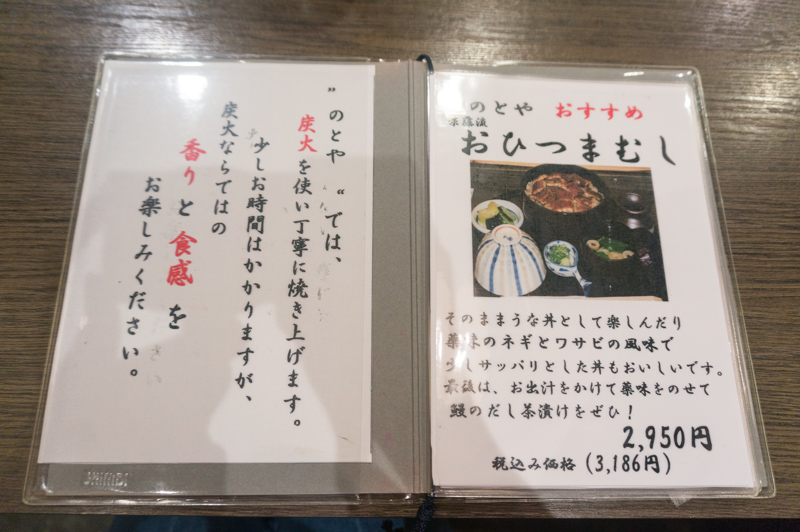 ”のとや“では、
炭火を使い丁寧に焼き上げます。
少しお時間はかかりますが、
炭火ならではの
香りと食感を
お楽しみください。
のとや おすすめ
おひつまむし
そのままうな丼として楽しんだり
薬味のネギとワサビの風味で
少しサッパリとした丼もおいしいです。
最後は、お出汁をかけて薬味をのせて
鰻のだし茶漬けをぜひ！
2,950円
税込み価格（3,186円）